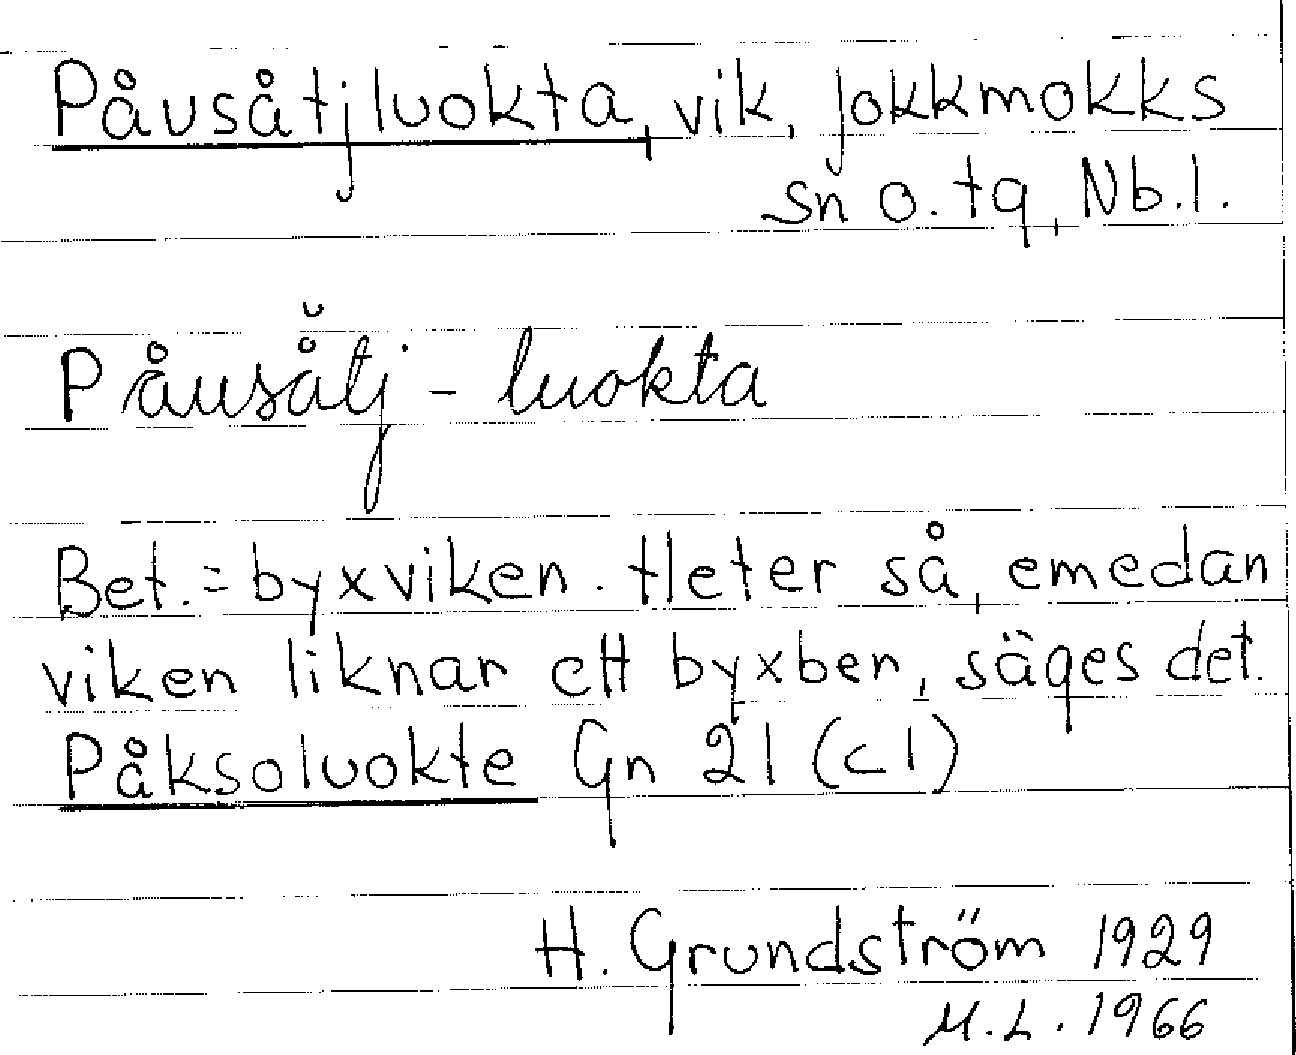 Påusåtjluokta, vik, Jokkmokks
sn o. tg, Nb.l.
Påuså̆tj - luokta
Bet. = byxviken. Heter så, emedan
viken liknar ett byxben, säges det.
Påksoluokte Gn 21 (c1)
H. Grundström 1929
M.L. 1966